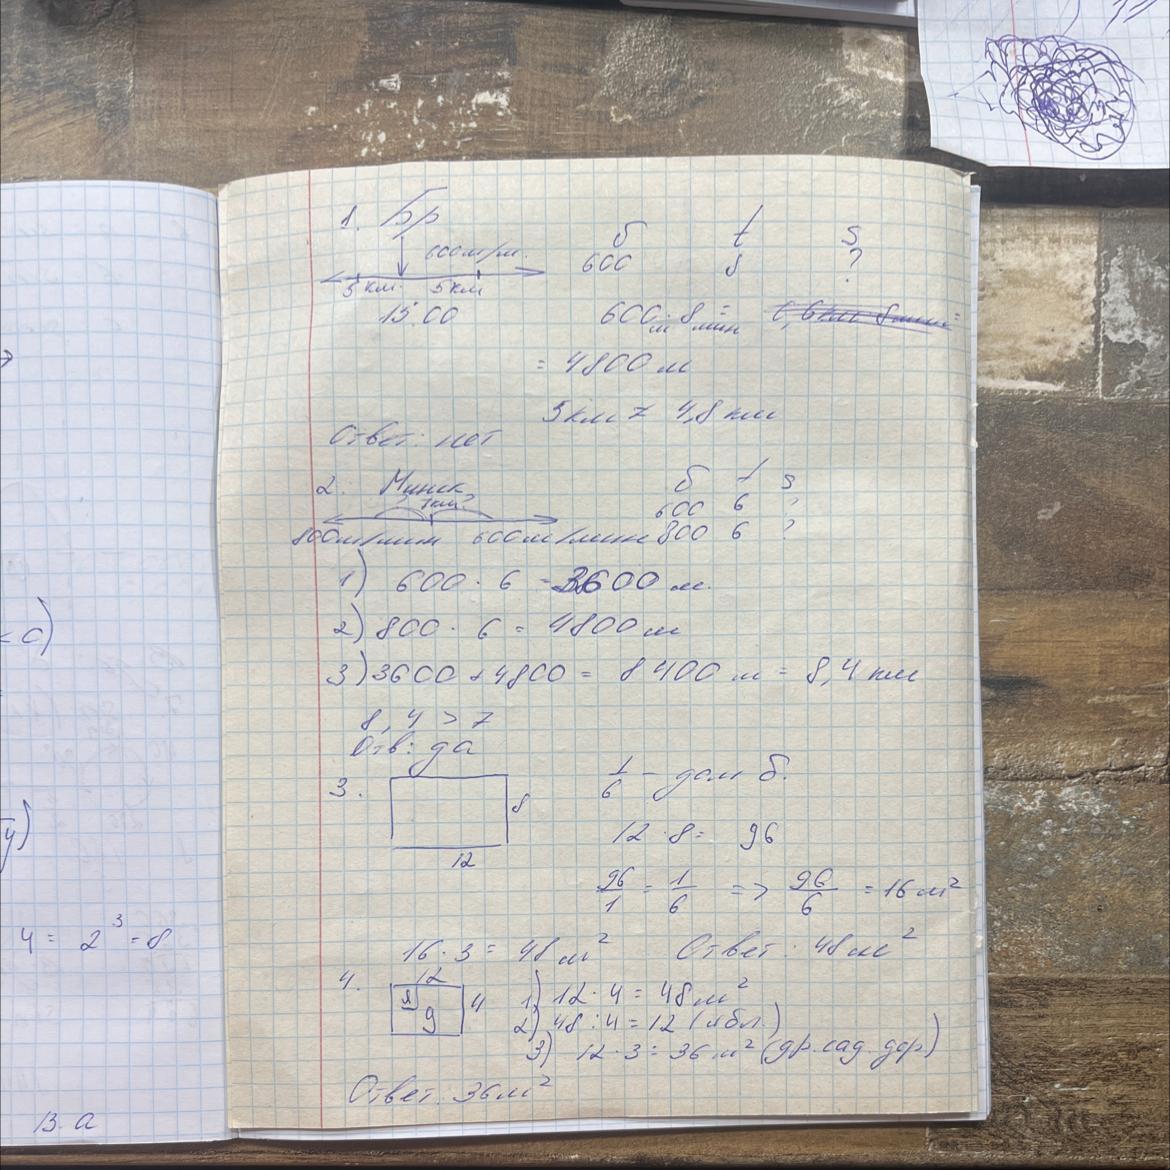 1. Бр
600м/м.
5 км. 5км
15:00
б t s
600 8 ?
600м · 8мин =
= 4800 м
5км ≠ 4,8 км
Ответ: нет
2. Минск
7км
800м/мин 600м/мин
б t s
600 6 ?
800 6 ?
1) 600 · 6 = 3600 м.
2) 800 · 6 = 4800 м
3) 3600 + 4800 = 8400 м = 8,4 км
8,4 > 7
Отв: да
3.
8
12
1/6 - дом б.
12 · 8 = 96
96/1 = 1/6 => 96/6 = 16 м²
16 · 3 = 48 м² Ответ: 48 м²
4.
12
4
я
д
1) 12 · 4 = 48 м²
2) 48 : 4 = 12 (ябл.)
3) 12 · 3 = 36 м² (др. сад. дер)
Ответ: 36м²
< 0)
4)
4 = 2³ = 8
В. а